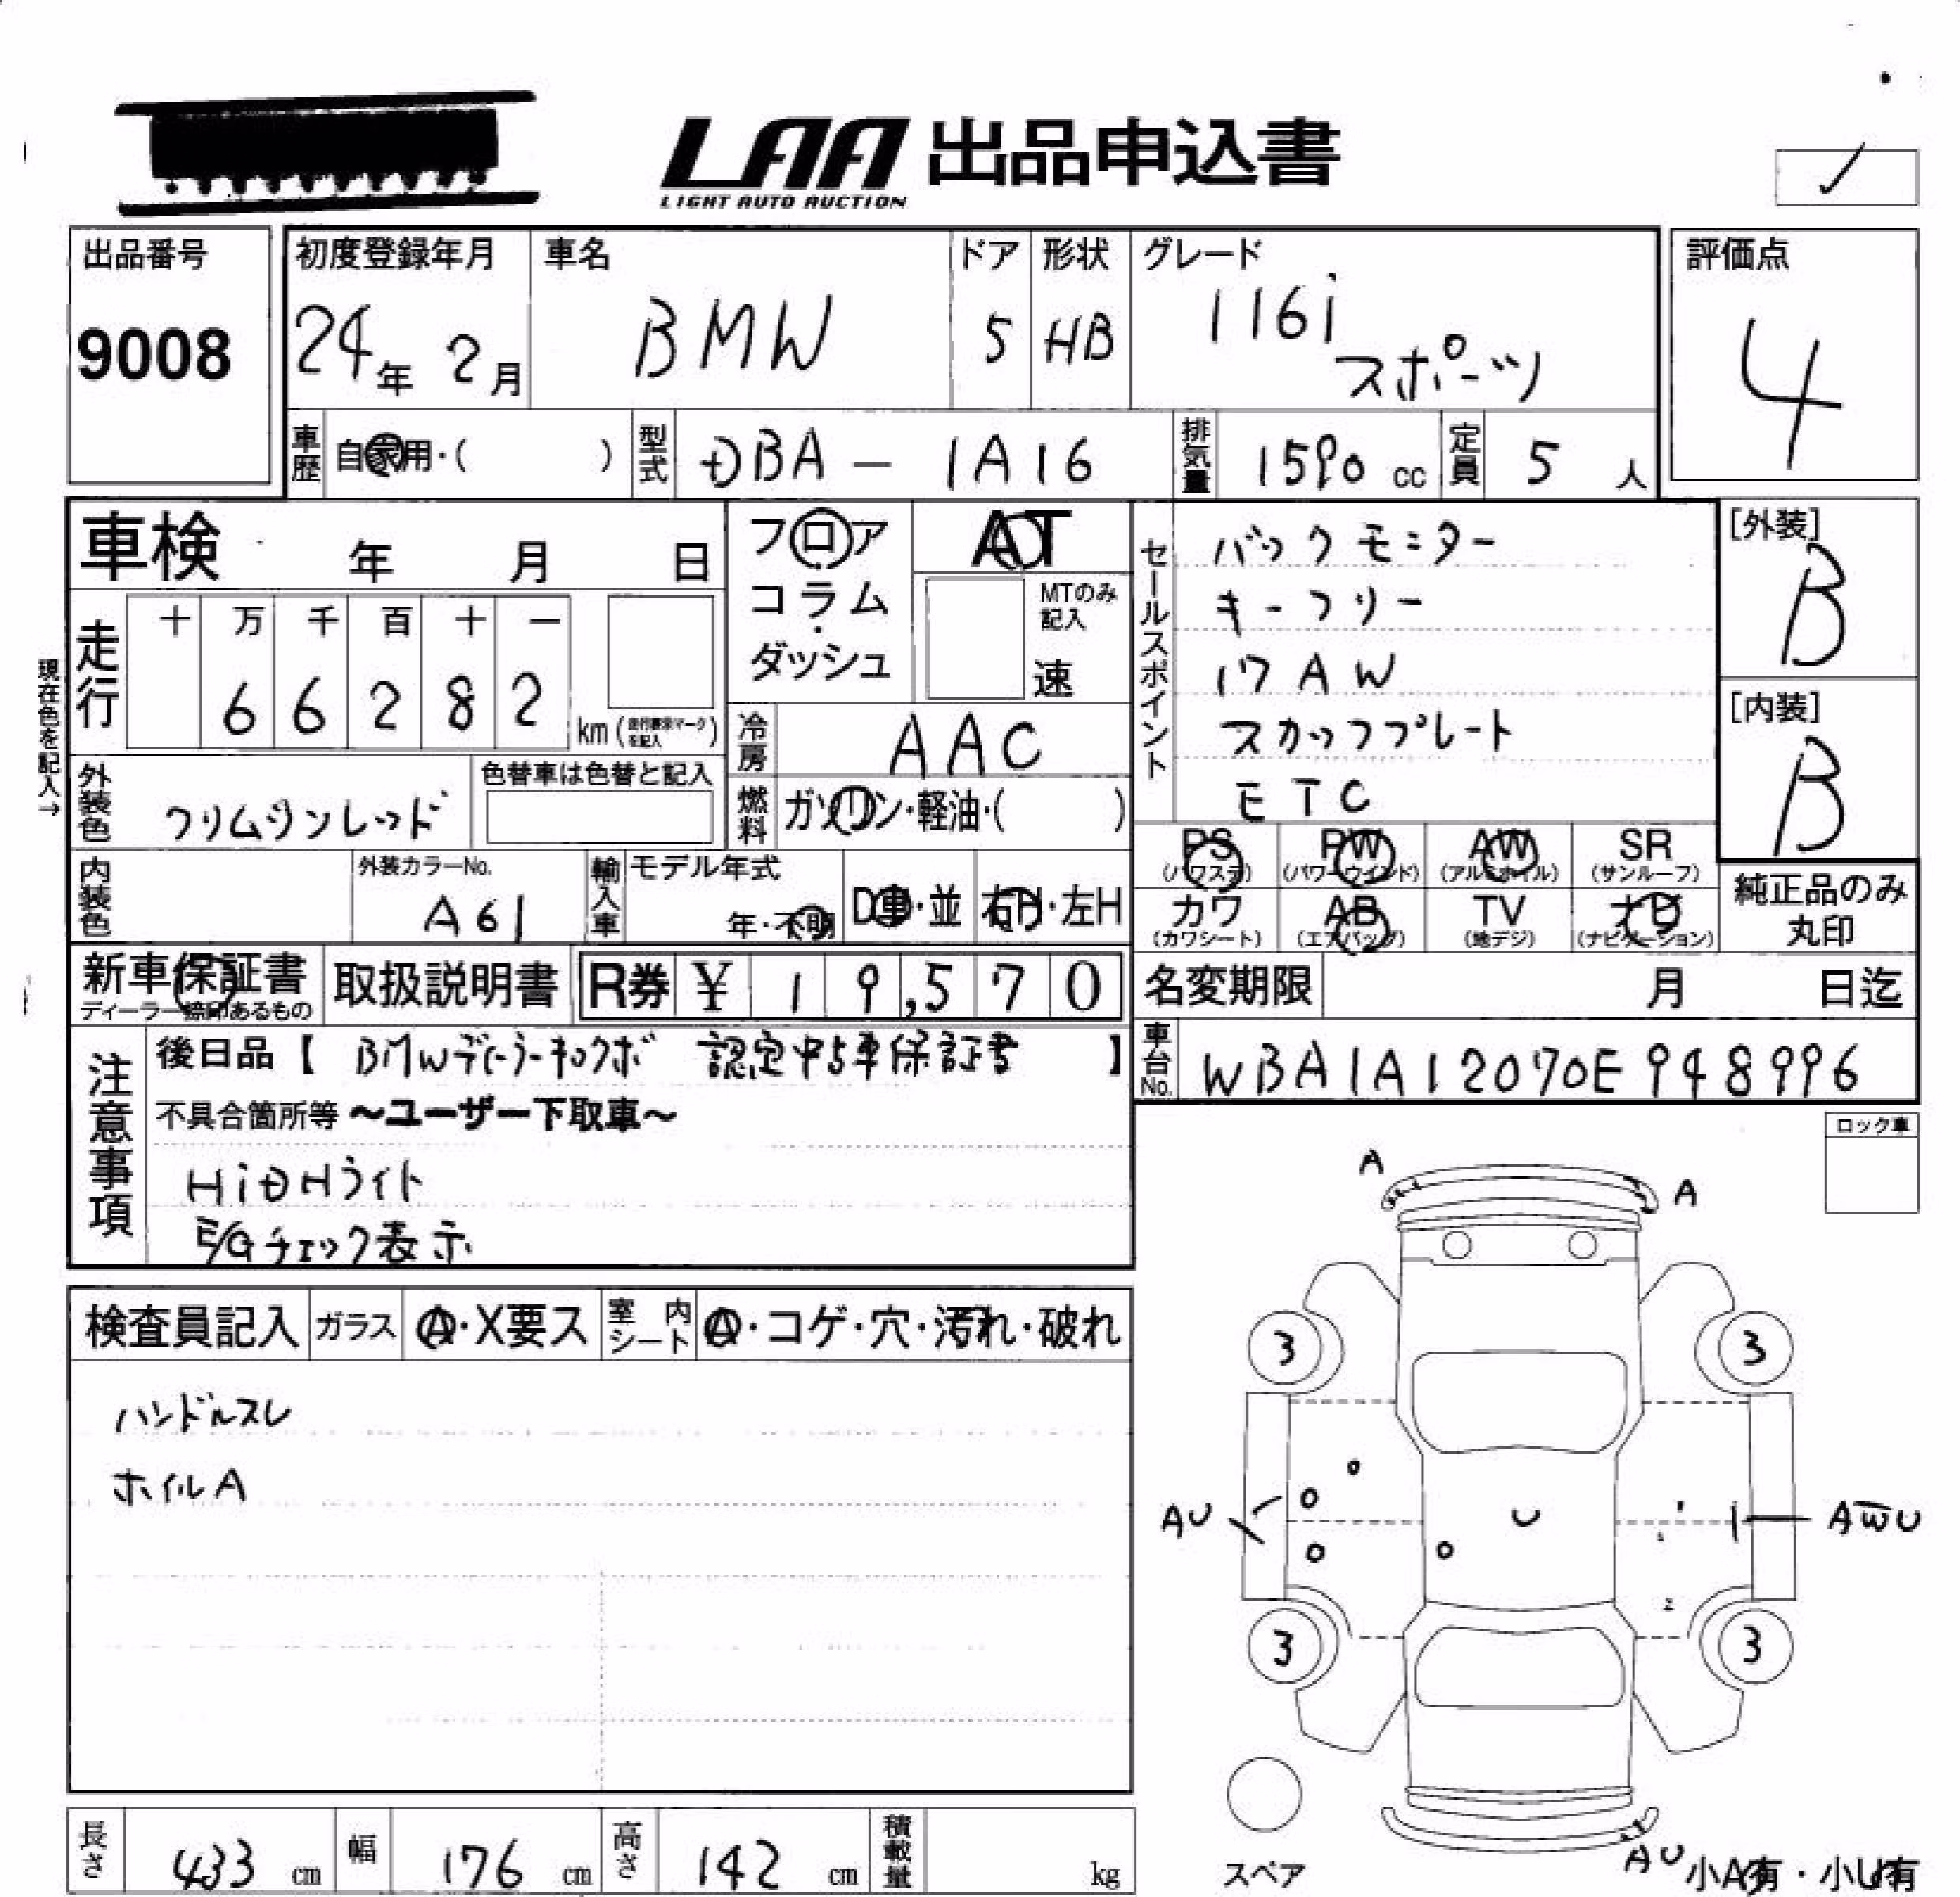 LAA 出品申込書
LIGHT AUTO AUCTION
出品番号 初度登録年月 車名 ドア 形状 グレード 評価点
9008 24年 2月 BMW 5 HB 116i スポーツ 4
車歴 自家用・( ) 型式 DBA - 1A16 排気量 1590 cc 定員 5 人
車検 年 月 日
フロア コラム・ダッシュ
AT
MTのみ記入 速
セールスポイント
バックモニター
キーフリー
17AW
スカッフプレート
ETC
[外装] B
[内装] B
現在色を記入→
走行 十 万 千 百 十 一
6 6 2 8 2 km
冷房 AAC
外装色 クリムゾンレッド 色替車は色替と記入
燃料 ガソリン・軽油・( )
PS (パワステ) PW (パワーウインド) AW (アルミホイル) SR (サンルーフ)
カワ (カワシート) AB (エアバッグ) TV (地デジ) ナビ (ナビゲーション)
純正品のみ丸印
内装色 外装カラーNo. A61 輸入車 モデル年式 年・不明 D車・並 右H・左H
新車保証書 取扱説明書 R券 ¥ 19,570
ディーラー捺印あるもの
名変期限 月 日迄
車台No. WBA1A12070E948996
注意事項
後日品【 BMWディーラーキロクボ 認定中古車保証書 】
不具合箇所等 〜ユーザー下取車〜
HiDHライト
E/Gチェック表示
ロック車
検査員記入 ガラス A・X要ス 室内シート A・コゲ・穴・汚れ・破れ
ハンドルスレ
ホイルA
A A
3 3
AU U AWU
2
3 3
スペア
AU 小A有・小U有
長さ 433 cm 幅 176 cm 高さ 142 cm 積載量 kg